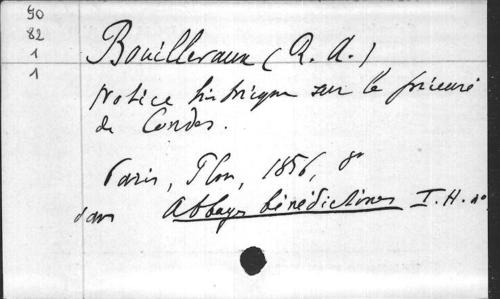 90
82
1
1
Bouilleraux (R. A.)
Notice historique sur le prieuré
de Condes.
Paris, 1856, 8º
dans Abbayes bénédictines I. H. nº